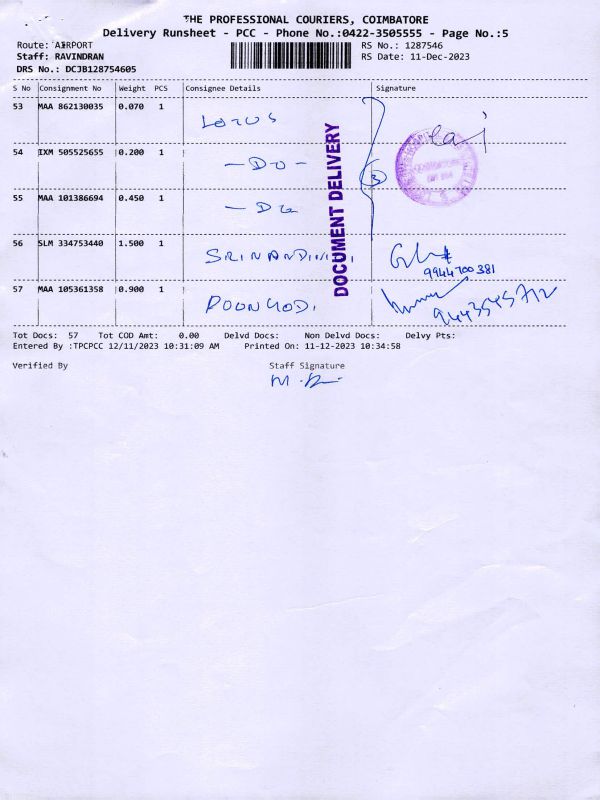 THE PROFESSIONAL COURIERS, COIMBATORE
Delivery Runsheet - PCC - Phone No.:0422-3505555 - Page No.:5
Route: AIRPORT
RS No.: 1287546
Staff: RAVINDRAN
RS Date: 11-Dec-2023
DRS No.: DCJB128754605
S No Consignment No Weight PCS Consignee Details Signature
53 MAA 862130035 0.070 1 LOTUS
54 IXM 505525655 0.200 1 - DO -
55 MAA 101386694 0.450 1 - DO
3
DOCUMENT DELIVERY
56 SLM 334753440 1.500 1 SRINANDINI
9944700381
57 MAA 105361358 0.900 1 POONGODI
9443545712
Tot Docs: 57 Tot COD Amt: 0.00 Delvd Docs: Non Delvd Docs: Delvy Pts:
Entered By :TPCPCC 12/11/2023 10:31:09 AM Printed On: 11-12-2023 10:34:58
Verified By Staff Signature